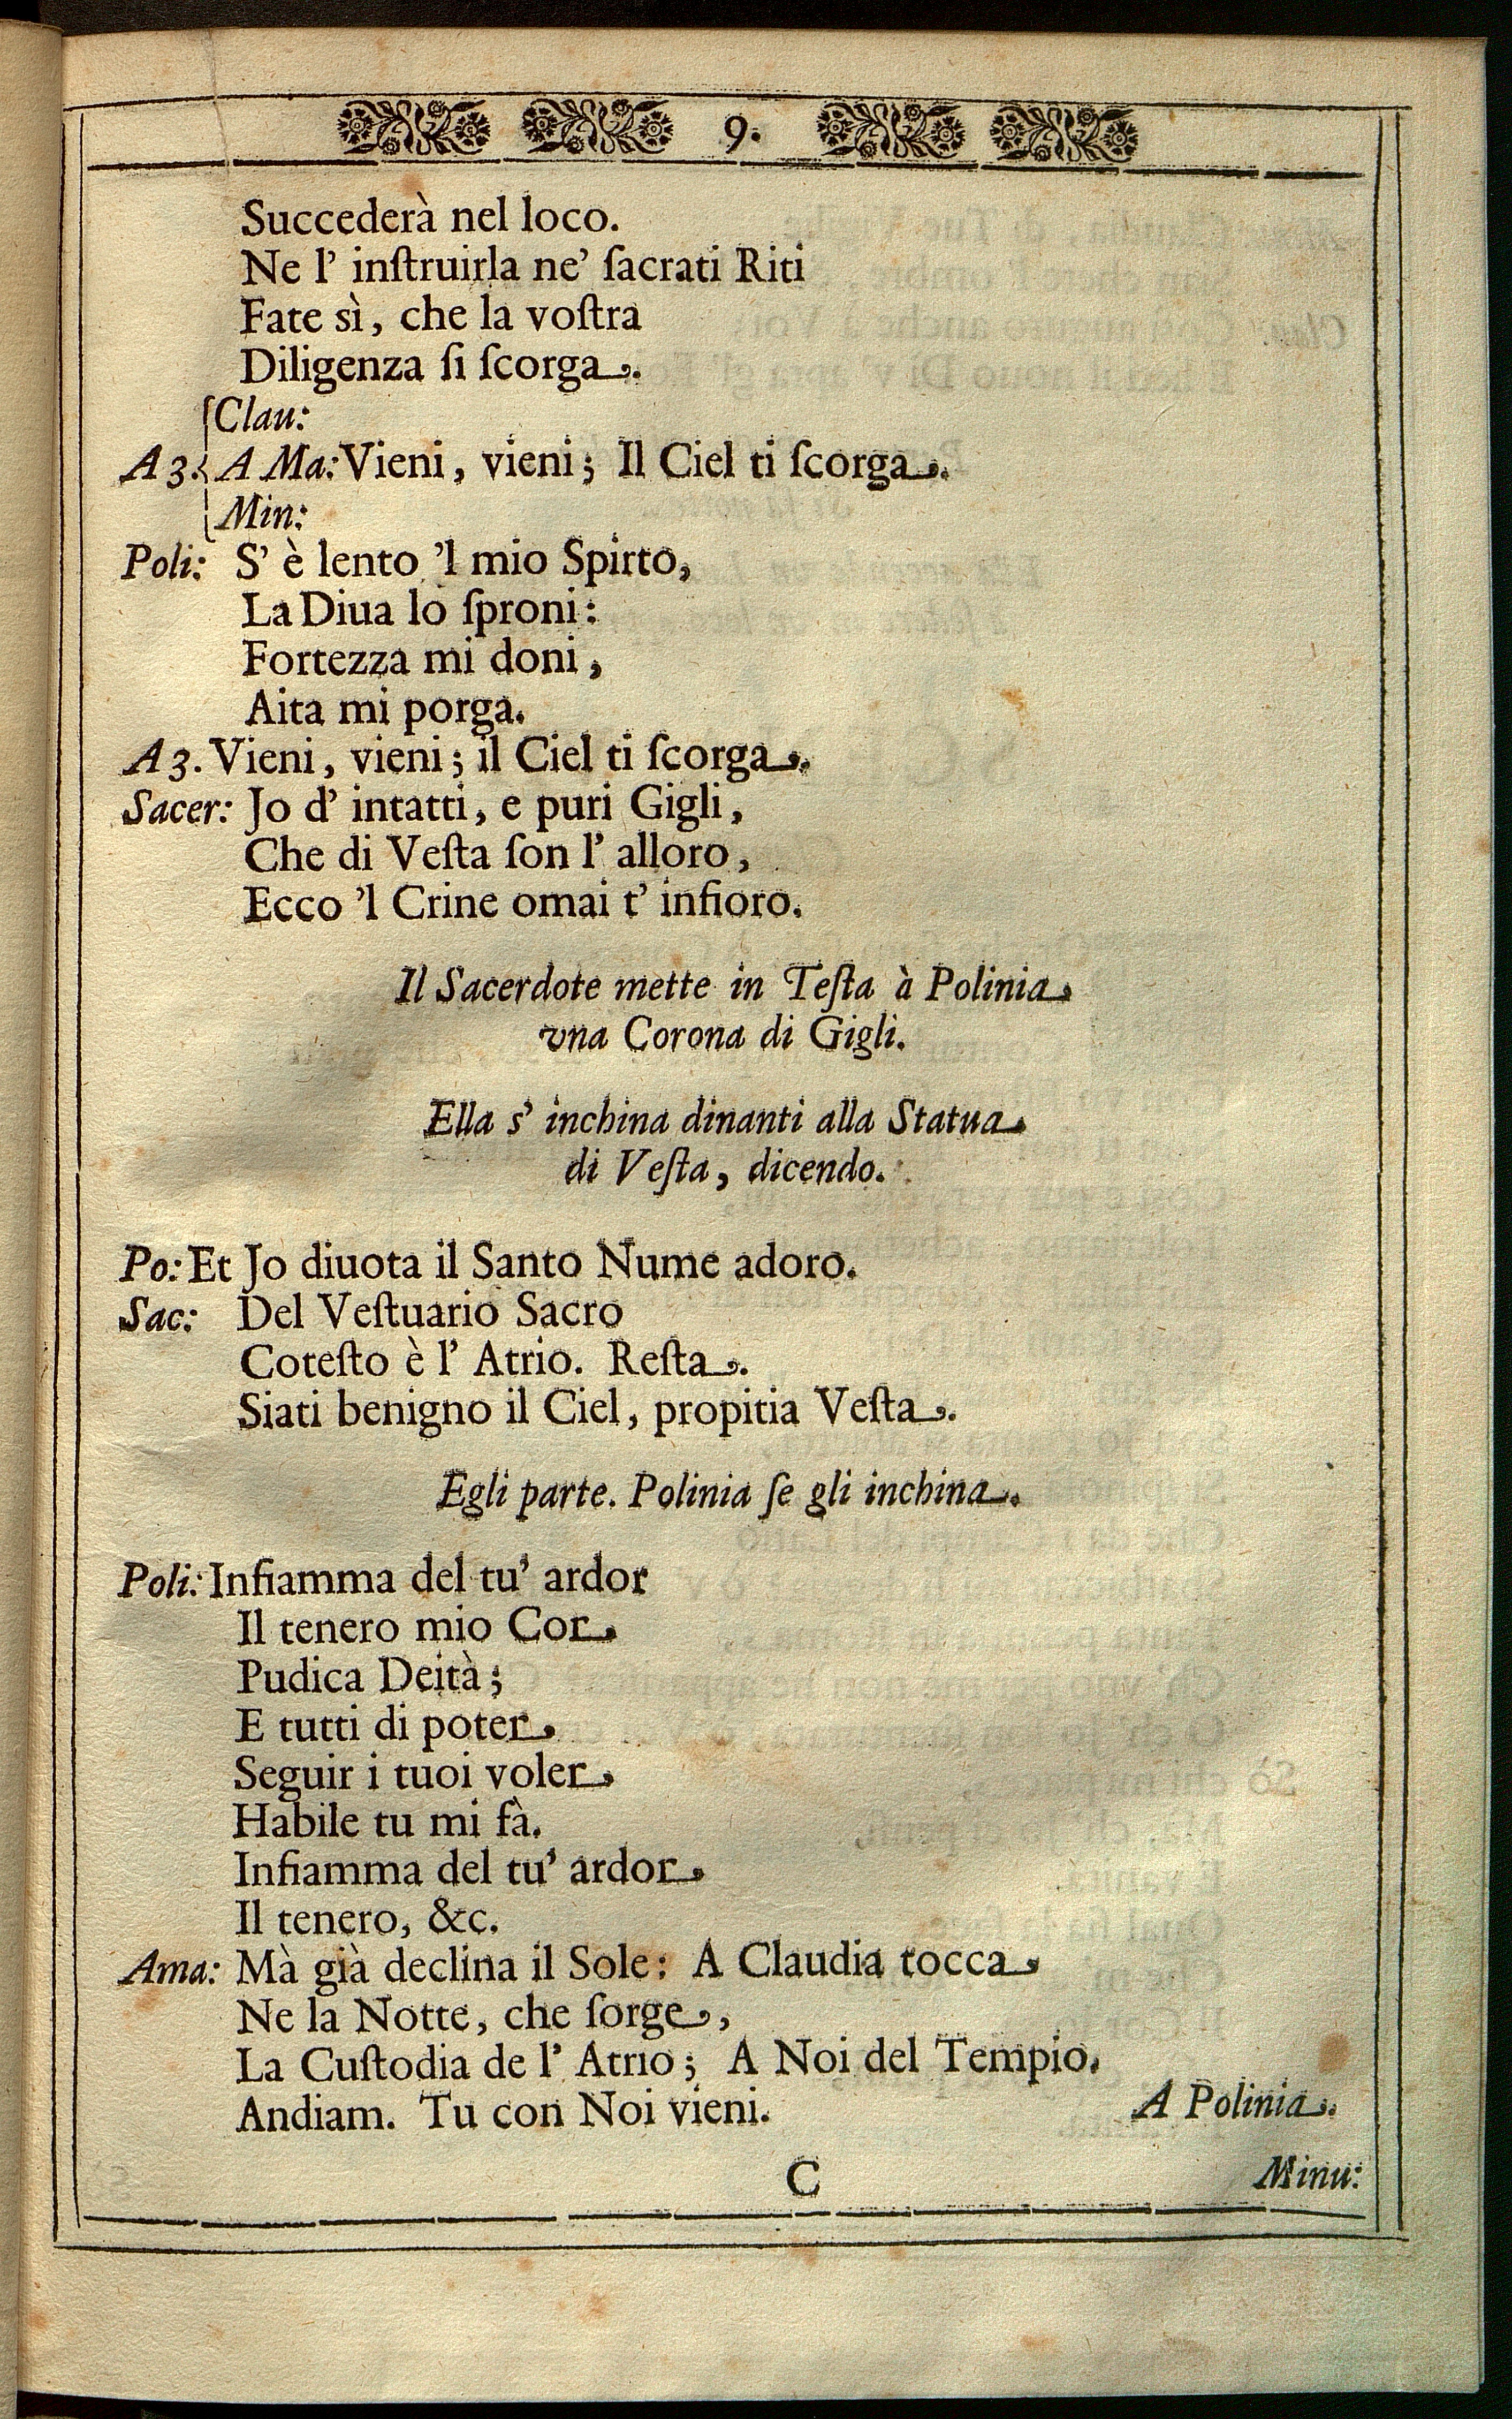 9.
Succederà nel loco.
Ne l' inſtruirla ne' ſacrati Riti
Fate sì, che la voſtra
Diligenza ſi ſcorga.
Clau:
A 3. A Ma: Vieni, vieni; Il Ciel ti ſcorga.
Min:
Poli: S' è lento 'l mio Spirto,
La Diua lo ſproni:
Fortezza mi doni,
Aita mi porga.
A 3. Vieni, vieni; il Ciel ti ſcorga.
Sacer: Jo d' intatti, e puri Gigli,
Che di Veſta ſon l' alloro,
Ecco 'l Crine omai t' infioro.
Il Sacerdote mette in Teſta à Polinia
vna Corona di Gigli.
Ella s' inchina dinanti alla Statua
di Veſta, dicendo.
Po: Et Jo diuota il Santo Nume adoro.
Sac: Del Veſtuario Sacro
Coteſto è l' Atrio. Reſta.
Siati benigno il Ciel, propitia Veſta.
Egli parte. Polinia ſe gli inchina.
Poli: Infiamma del tu' ardor
Il tenero mio Cor
Pudica Deità;
E tutti di poter
Seguir i tuoi voler
Habile tu mi fà.
Infiamma del tu' ardor
Il tenero, &c.
Ama: Mà già declina il Sole: A Claudia tocca
Ne la Notte, che ſorge,
La Cuſtodia de l' Atrio; A Noi del Tempio.
Andiam. Tu con Noi vieni. A Polinia.
C Minu: